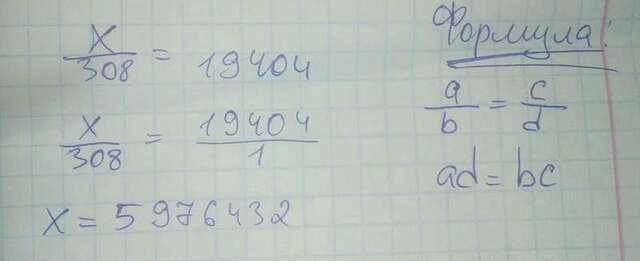 x/308 = 19404
x/308 = 19404/1
x = 5976432
Формула:
a/b = c/d
ad = bc